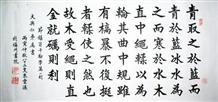 青取之於藍而
青於藍冰水為
之而寒於水木
直中繩輮以為
輪其曲中規雖
有槁暴不復挺
者輮使之然也
故木受繩則直
金就礪則利